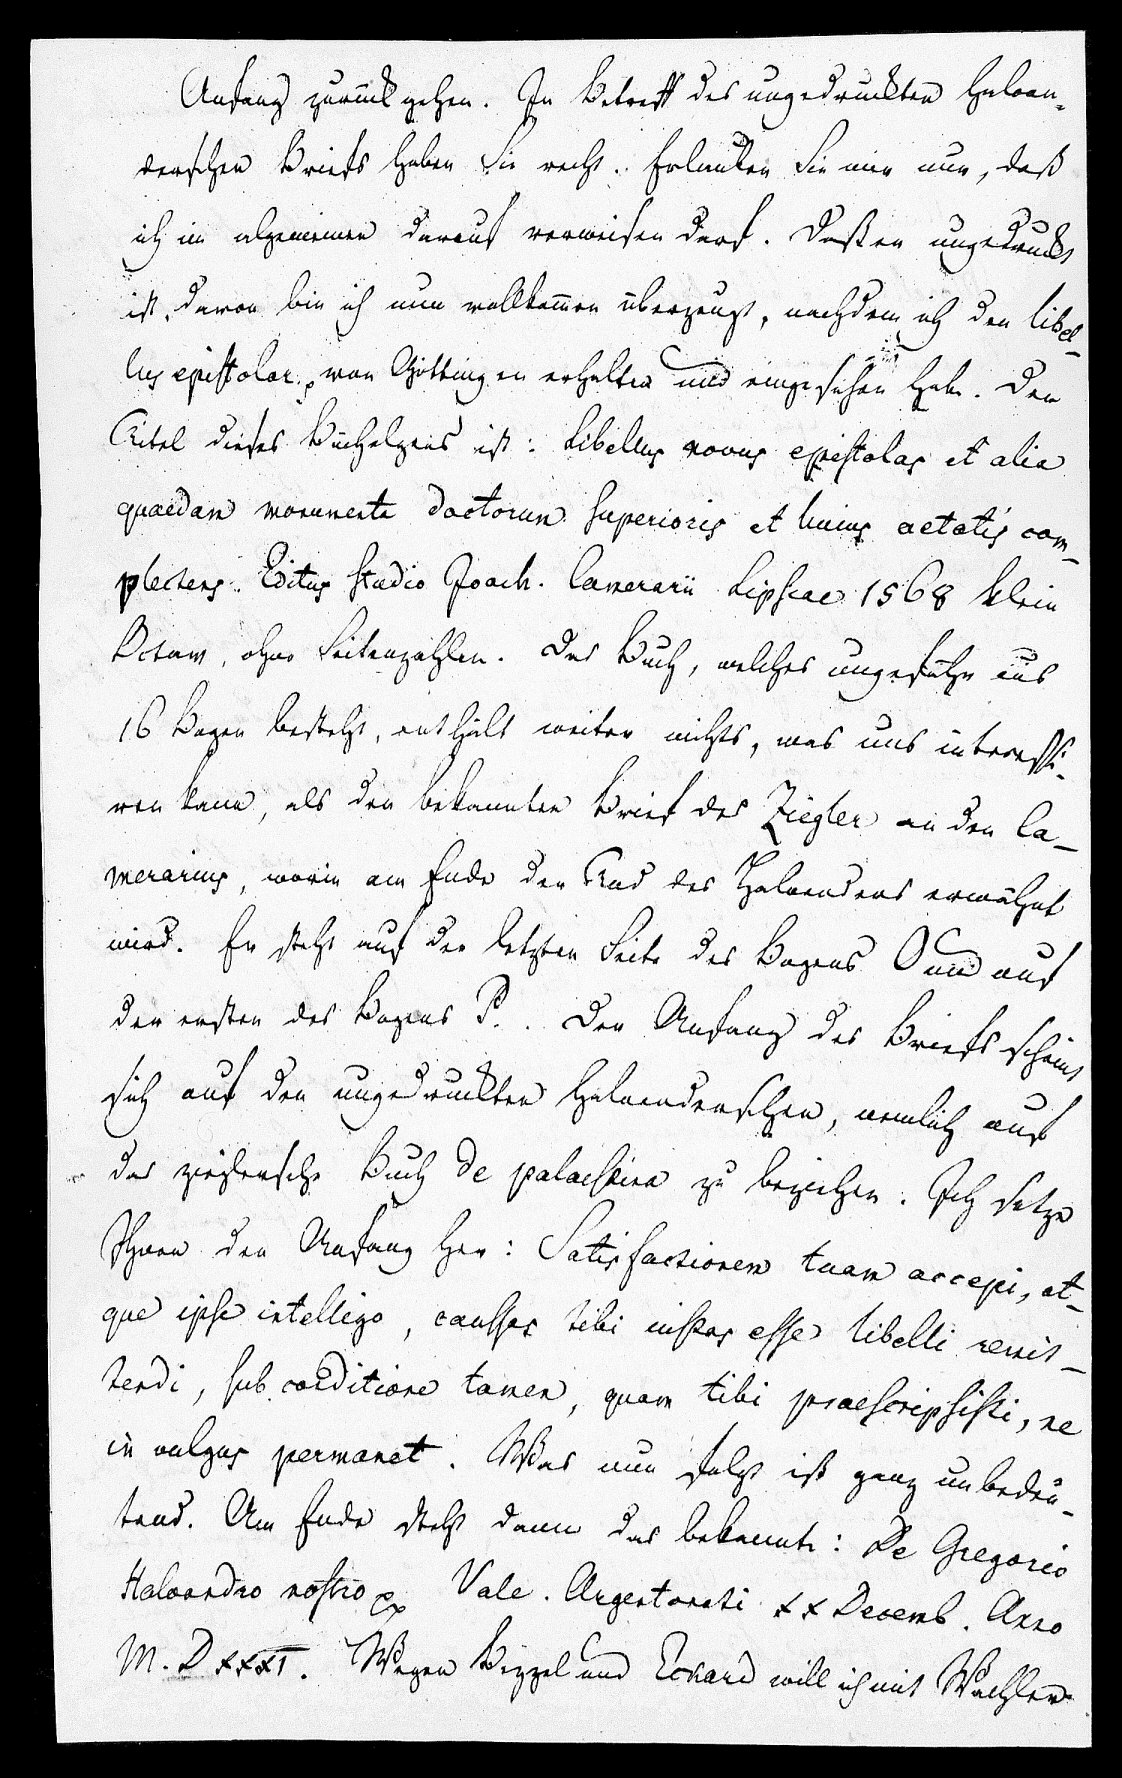 Anfang zurück gehen. In Betreff des ungedruckten Haloan-
derschen Briefs haben Sie recht. Erlauben Sie mir nun, daß
ich im algemeinen darauf verweisen darf. Daß er ungedruckt
ist, davon bin ich nun vollkom̄en überzeugt, nachdem ich den libel-
lus epistolar. von Göttingen erhalten und eingesehen habe. Der
Titel dieses Büchelgens ist: Libellus novus epistolas et alia
quaedam monumenta doctorum superioris et huius aetatis com-
plectens. Editus studio Joach. Camerarii Lipsiae 1568 klein
Octav, ohne Seitenzahlen. Das Buch, welches ungefähr aus
16 Bogen besteht, enthält weiter nichts, was uns interessi-
ren kann, als den bekannten Brief des Ziegler an den Ca-
merarius, worin am Ende der Tod des Haloanders erwähnt
wird. Er steht auf der letzten Seite des Bogens O und auf
der ersten des Bogens P. Der Anfang des Briefs scheint
sich auf den ungedruckten Haloanderschen, nemlich auf
das zieglersche Buch de palaestina zu beziehen. Ich setze
Ihnen den Anfang her: Satisfactionem tuam accepi, at-
que ipse intelligo, caussas tibi iustas esse libelli remit-
tendi, sub conditione tamen, quam tibi praescripsisti, ne
in vulgus permanet. Was nun folgt ist ganz unbedeu-
tend. Am Ende steht dann das bekannte: De Gregorio
Haloandro nostro pp Vale. Argentorati XX Decemb. Anno
M. D XXXI. Wegen Bizzel und Eckard will ich mit Wachler